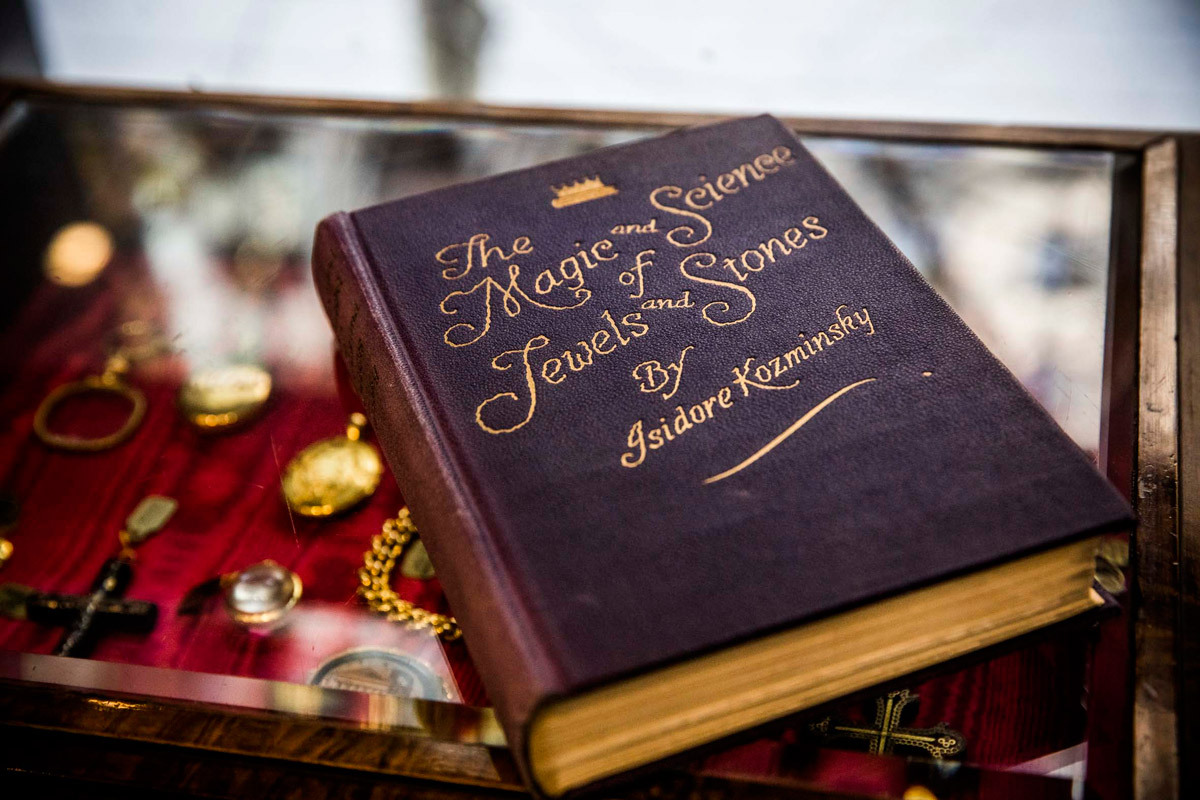 The
Magic and Science
of
Jewels and Stones
By
Isidore Kozminsky